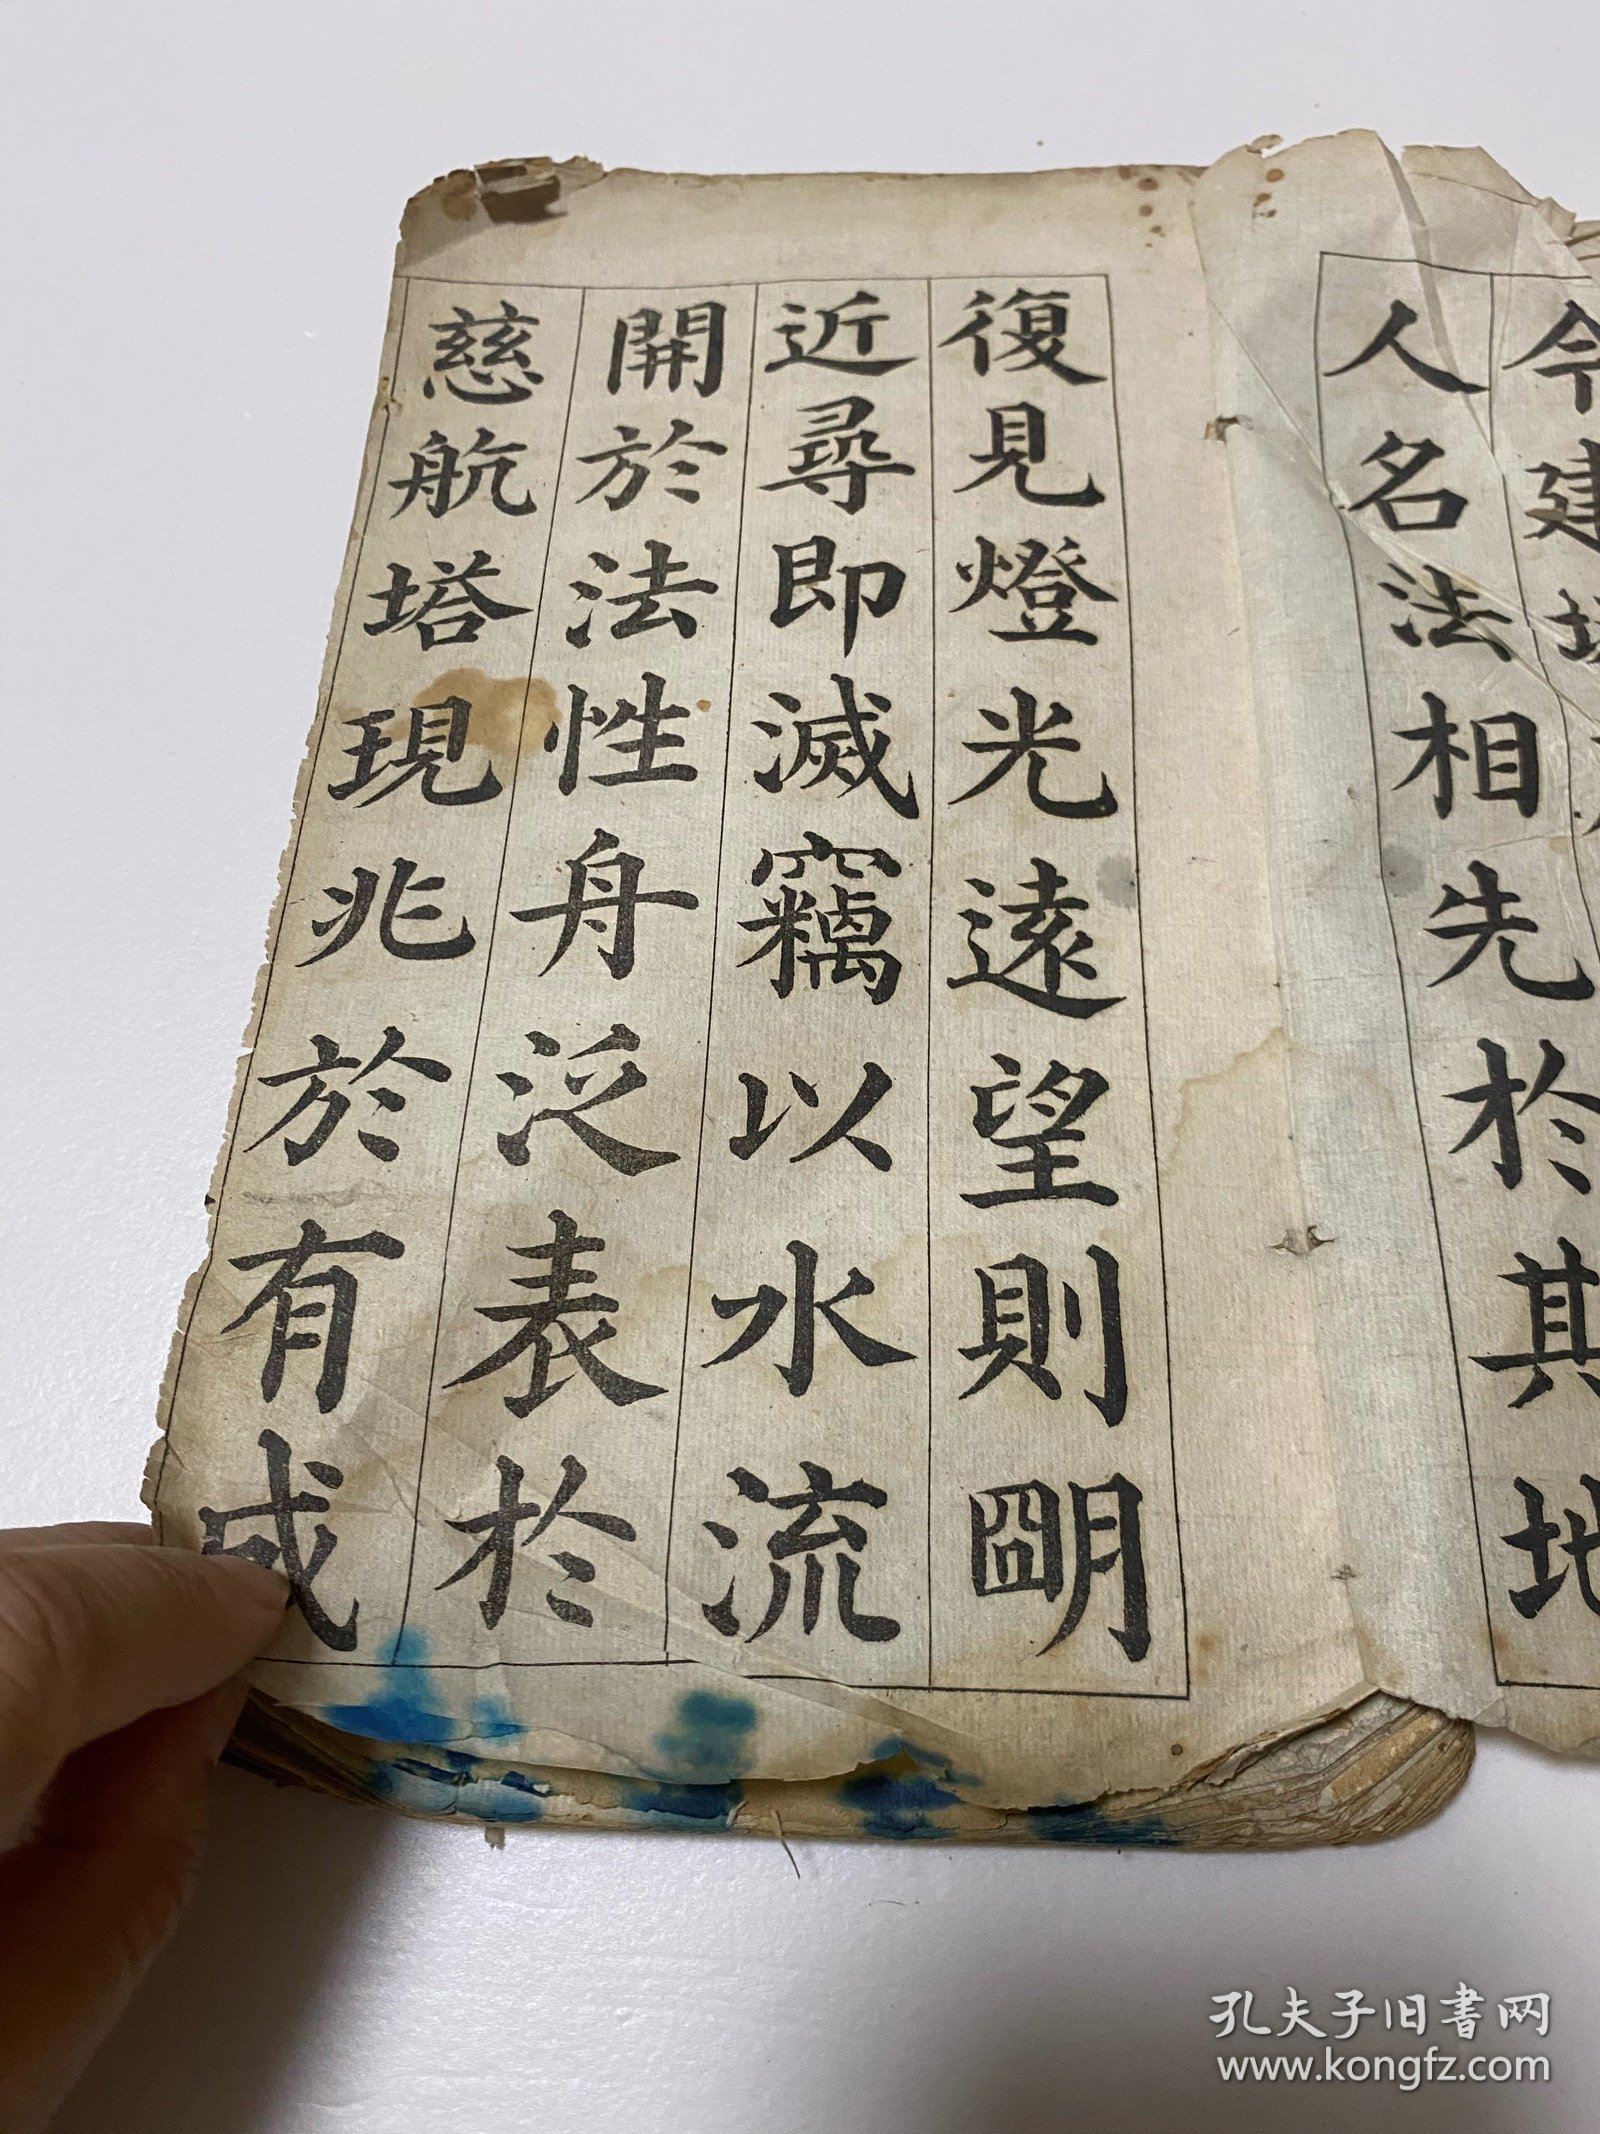 今建
人名法相先於其地
復見燈光遠望則朙
近尋即滅竊以水流
開於法性舟泛表於
慈航塔現兆於有成
孔夫子旧書网
www.kongfz.com